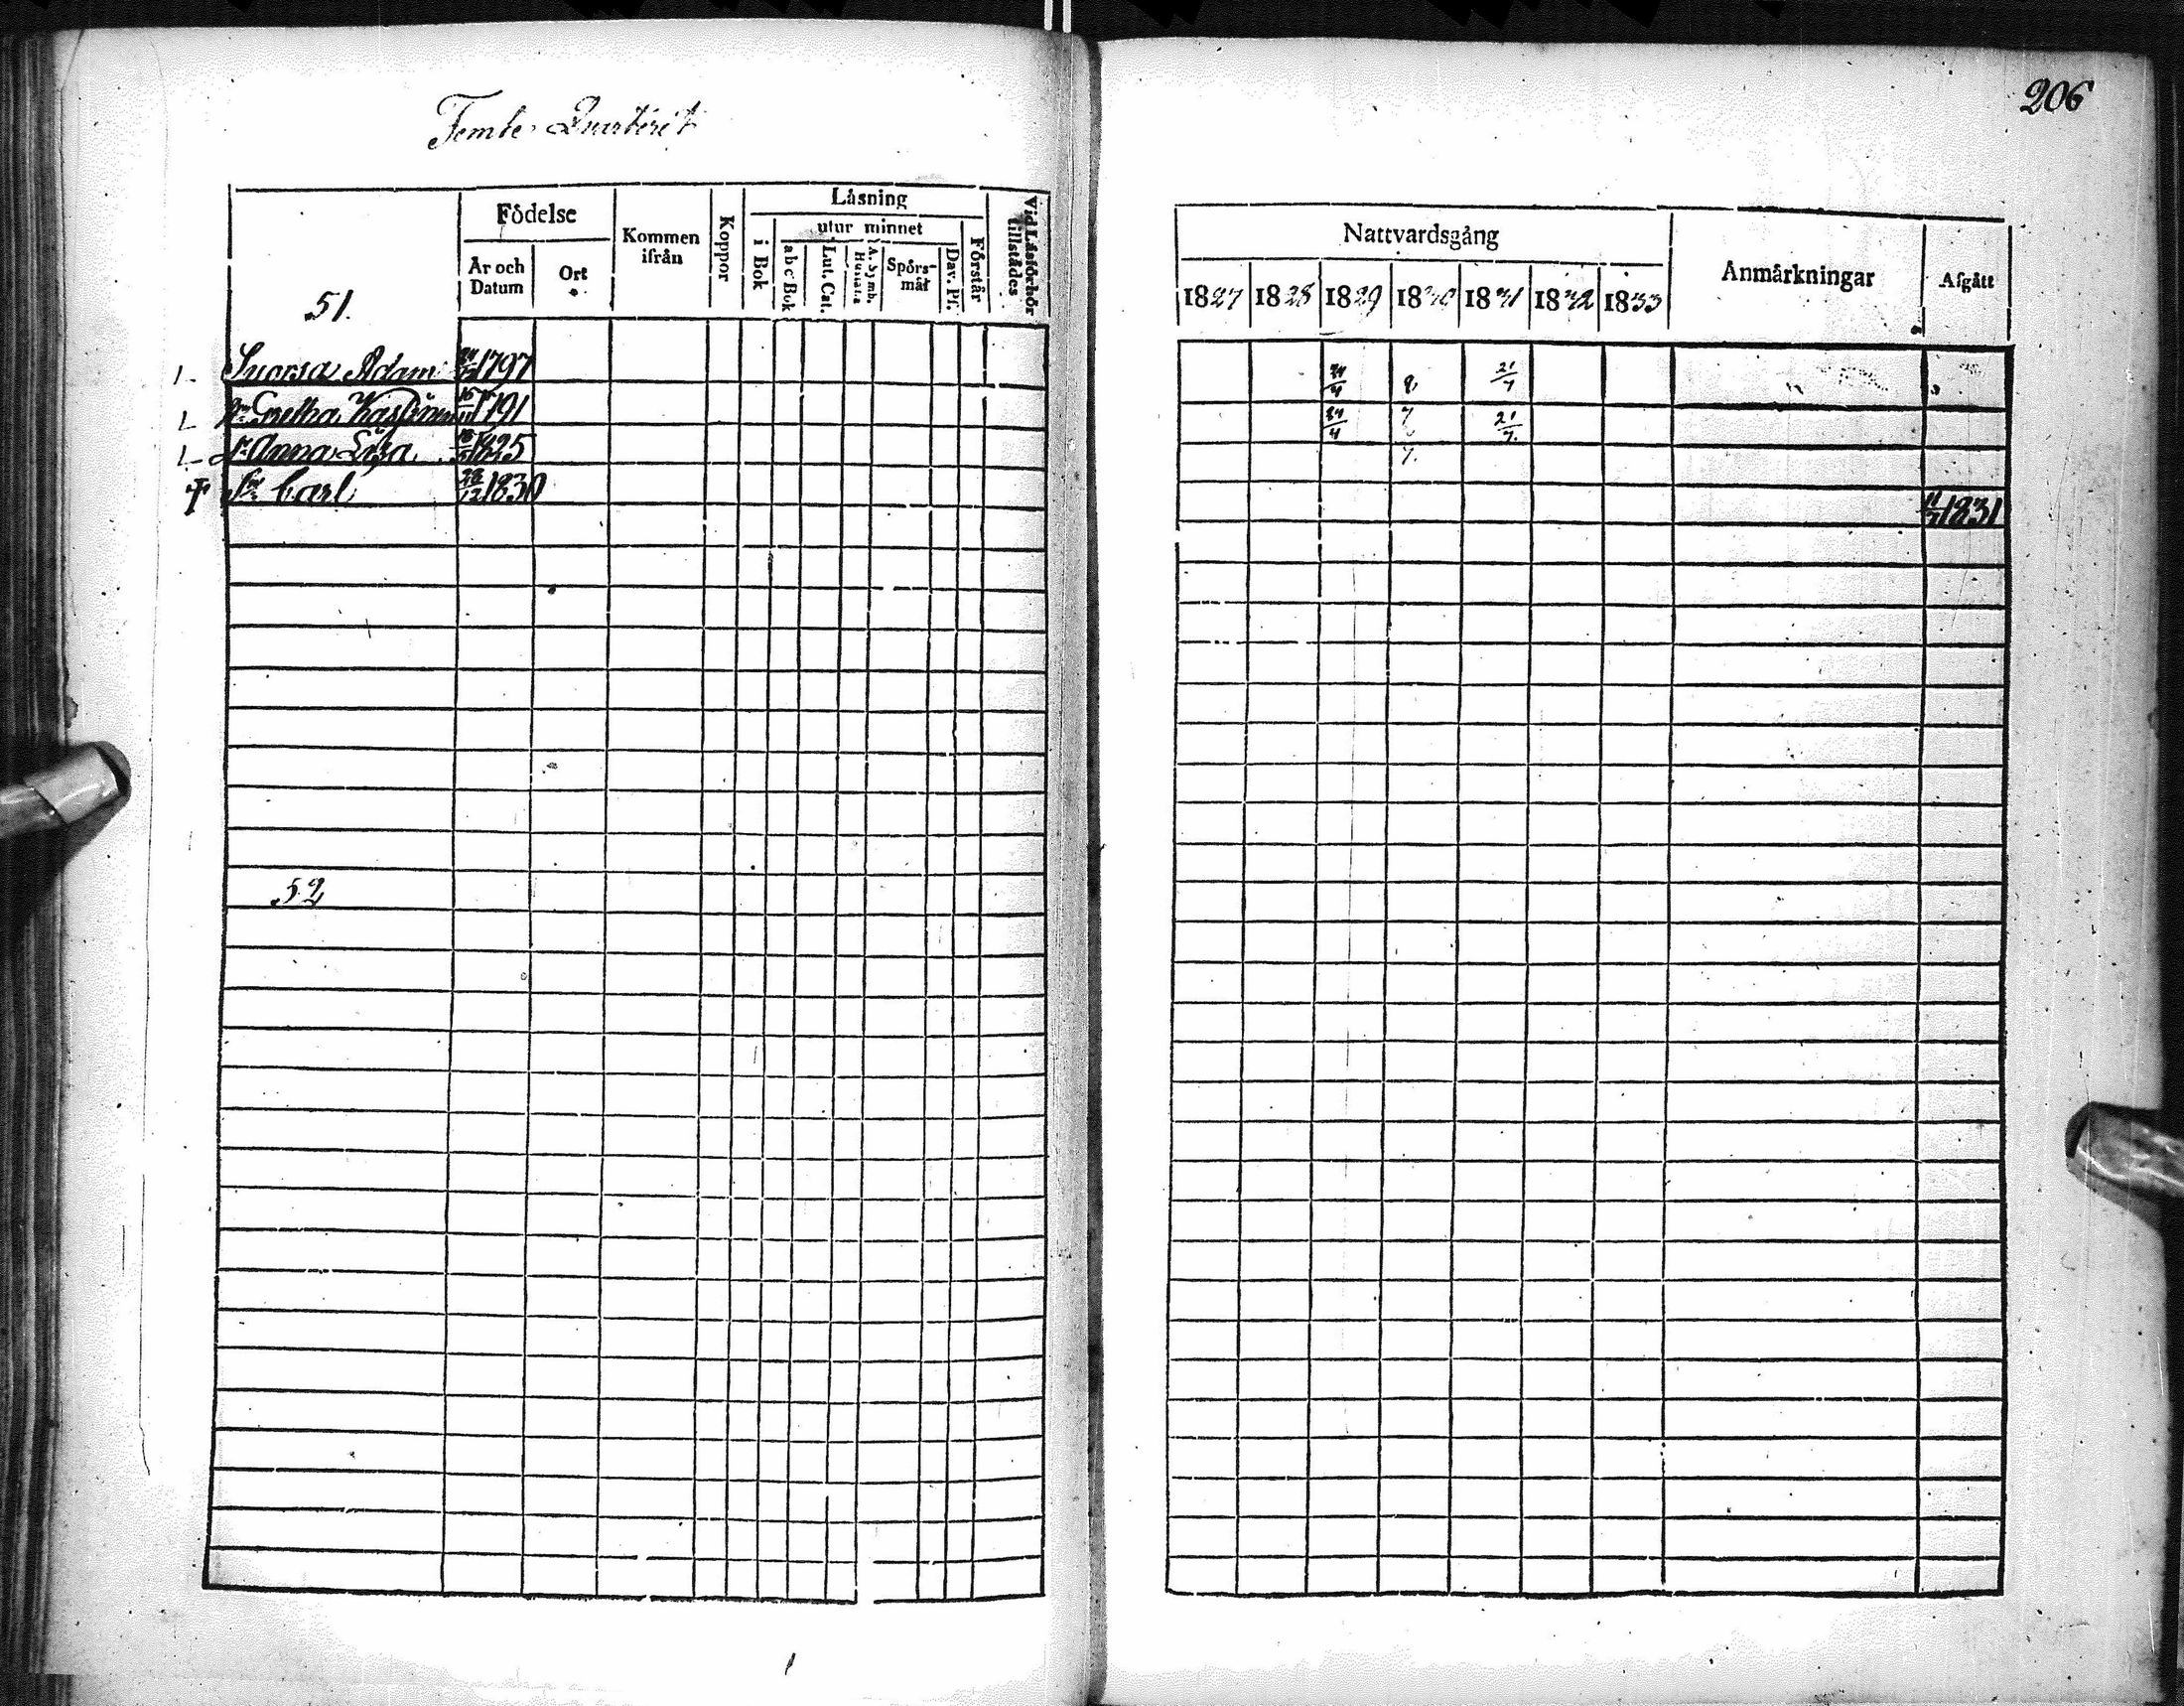 Femte Quarteret
206
Födelse
Kommen ifrån
Koppor
Läsning
utur minnet
i Bok
abc Bok
Lut. Cat.
A. Symb. Hustafla
Spörsmål
Dav. Ps.
Förstår
Vid Läsförhör tillstädes
År och Datum
Ort
Nattvardsgång
1827 1828 1829 1830 1831 1832 1833
Anmärkningar
Afgått
51.
Suorsa Adam 1797 24/4 8 21/7
Hu Gretha 1791 24/4 7 21/7
Anna Lisa 1825 7.
Sn Carl 28/12 1830 1831
52